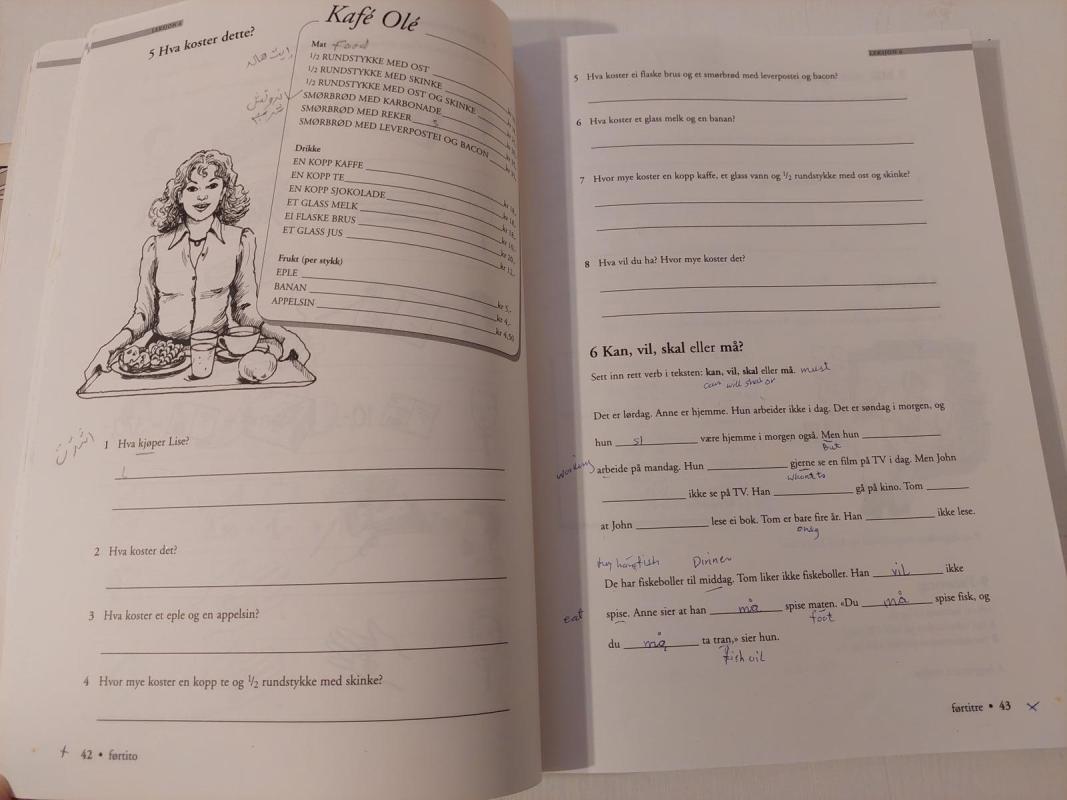 LEKSJON 6
5 Hva koster dette?
Kafé Olé
Mat Food
1/2 RUNDSTYKKE MED OST
1/2 RUNDSTYKKE MED SKINKE
1/2 RUNDSTYKKE MED OST OG SKINKE
SMØRBRØD MED KARBONADE
SMØRBRØD MED REKER
SMØRBRØD MED LEVERPOSTEI OG BACON
Drikke
EN KOPP KAFFE
EN KOPP TE
EN KOPP SJOKOLADE
ET GLASS MELK
EI FLASKE BRUS kr 20,-
ET GLASS JUS kr 12,-
Frukt (per stykk)
EPLE kr 5,-
BANAN kr 4,-
APPELSIN kr 4,50
1 Hva kjøper Lise?
2 Hva koster det?
3 Hva koster et eple og en appelsin?
4 Hvor mye koster en kopp te og 1/2 rundstykke med skinke?
42 • førtito
LEKSJON 6
5 Hva koster ei flaske brus og et smørbrød med leverpostei og bacon?
6 Hva koster et glass melk og en banan?
7 Hvor mye koster en kopp kaffe, et glass vann og 1/2 rundstykke med ost og skinke?
8 Hva vil du ha? Hvor mye koster det?
6 Kan, vil, skal eller må?
Sett inn rett verb i teksten: kan, vil, skal eller må. must
can will shal or
Det er lørdag. Anne er hjemme. Hun arbeider ikke i dag. Det er søndag i morgen, og
hun sl være hjemme i morgen også. Men hun
But
working arbeide på mandag. Hun gjerne se en film på TV i dag. Men John
ikke se på TV. Han gå på kino. Tom
at John lese ei bok. Tom er bare fire år. Han ikke lese.
only
Dinner
De har fiskeboller til middag. Tom liker ikke fiskeboller. Han vil ikke
eat spise. Anne sier at han må spise maten. «Du må spise fisk, og
foot
du må ta tran,» sier hun.
fish oil
førtitre • 43 x